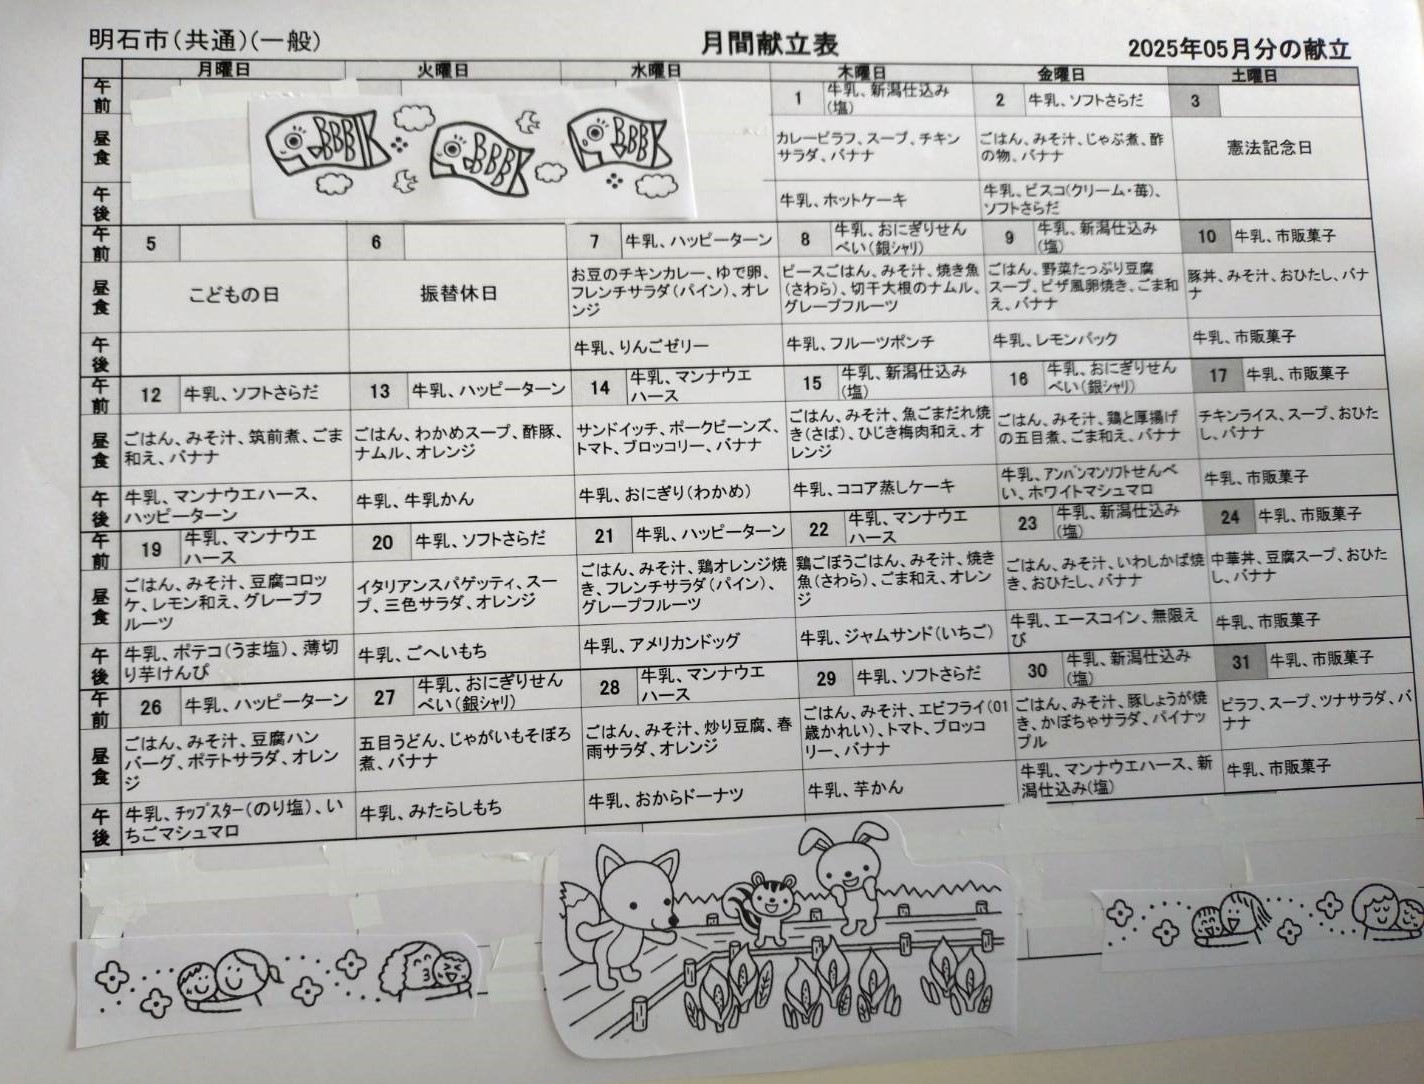 明石市(共通)(一般)
月間献立表
2025年05月分の献立
月曜日 火曜日 水曜日 木曜日 金曜日 土曜日
午前
1 牛乳、新潟仕込み
(塩)
2 牛乳、ソフトさらだ
3
昼食
カレーピラフ、スープ、チキン
サラダ、バナナ
ごはん、みそ汁、じゃぶ煮、酢
の物、バナナ
憲法記念日
午後
牛乳、ホットケーキ
牛乳、ビスコ(クリーム・苺)、
ソフトさらだ
午前
5
6
7 牛乳、ハッピーターン
8 牛乳、おにぎりせん
べい(銀シャリ)
9 牛乳、新潟仕込み
(塩)
10 牛乳、市販菓子
昼食
こどもの日
振替休日
お豆のチキンカレー、ゆで卵、
フレンチサラダ(パイン)、オレ
ンジ
ピースごはん、みそ汁、焼き魚
(さわら)、切干大根のナムル、
グレープフルーツ
ごはん、野菜たっぷり豆腐
スープ、ピザ風卵焼き、ごま和
え、バナナ
豚丼、みそ汁、おひたし、バナ
ナ
午後
牛乳、りんごゼリー
牛乳、フルーツポンチ
牛乳、レモンパック
牛乳、市販菓子
午前
12 牛乳、ソフトさらだ
13 牛乳、ハッピーターン
14 牛乳、マンナウエ
ハース
15 牛乳、新潟仕込み
(塩)
16 牛乳、おにぎりせん
べい(銀シャリ)
17 牛乳、市販菓子
昼食
ごはん、みそ汁、筑前煮、ごま
和え、バナナ
ごはん、わかめスープ、酢豚、
ナムル、オレンジ
サンドイッチ、ポークビーンズ、
トマト、ブロッコリー、バナナ
ごはん、みそ汁、魚ごまだれ焼
き(さば)、ひじき梅肉和え、オ
レンジ
ごはん、みそ汁、鶏と厚揚げ
の五目煮、ごま和え、バナナ
チキンライス、スープ、おひた
し、バナナ
午後
牛乳、マンナウエハース、
ハッピーターン
牛乳、牛乳かん
牛乳、おにぎり(わかめ)
牛乳、ココア蒸しケーキ
牛乳、アンパンマンソフトせんべ
い、ホワイトマシュマロ
牛乳、市販菓子
午前
19 牛乳、マンナウエ
ハース
20 牛乳、ソフトさらだ
21 牛乳、ハッピーターン
22 牛乳、マンナウエ
ハース
23 牛乳、新潟仕込み
(塩)
24 牛乳、市販菓子
昼食
ごはん、みそ汁、豆腐コロッ
ケ、レモン和え、グレープフ
ルーツ
イタリアンスパゲッティ、スー
プ、三色サラダ、オレンジ
ごはん、みそ汁、鶏オレンジ焼
き、フレンチサラダ(パイン)、
グレープフルーツ
鶏ごぼうごはん、みそ汁、焼き
魚(さわら)、ごま和え、オレン
ジ
ごはん、みそ汁、いわしかば焼
き、おひたし、バナナ
中華丼、豆腐スープ、おひた
し、バナナ
午後
牛乳、ポテコ(うま塩)、薄切
り芋けんぴ
牛乳、ごへいもち
牛乳、アメリカンドッグ
牛乳、ジャムサンド(いちご)
牛乳、エースコイン、無限え
び
牛乳、市販菓子
午前
26 牛乳、ハッピーターン
27 牛乳、おにぎりせん
べい(銀シャリ)
28 牛乳、マンナウエ
ハース
29 牛乳、ソフトさらだ
30 牛乳、新潟仕込み
(塩)
31 牛乳、市販菓子
昼食
ごはん、みそ汁、豆腐ハン
バーグ、ポテトサラダ、オレン
ジ
五目うどん、じゃがいもそぼろ
煮、バナナ
ごはん、みそ汁、炒り豆腐、春
雨サラダ、オレンジ
ごはん、みそ汁、エビフライ(01
歳かれい)、トマト、ブロッコ
リー、バナナ
ごはん、みそ汁、豚しょうが焼
き、かぼちゃサラダ、パイナッ
プル
ピラフ、スープ、ツナサラダ、バ
ナナ
午後
牛乳、チップスター(のり塩)、い
ちごマシュマロ
牛乳、みたらしもち
牛乳、おからドーナツ
牛乳、芋かん
牛乳、マンナウエハース、新
潟仕込み(塩)
牛乳、市販菓子